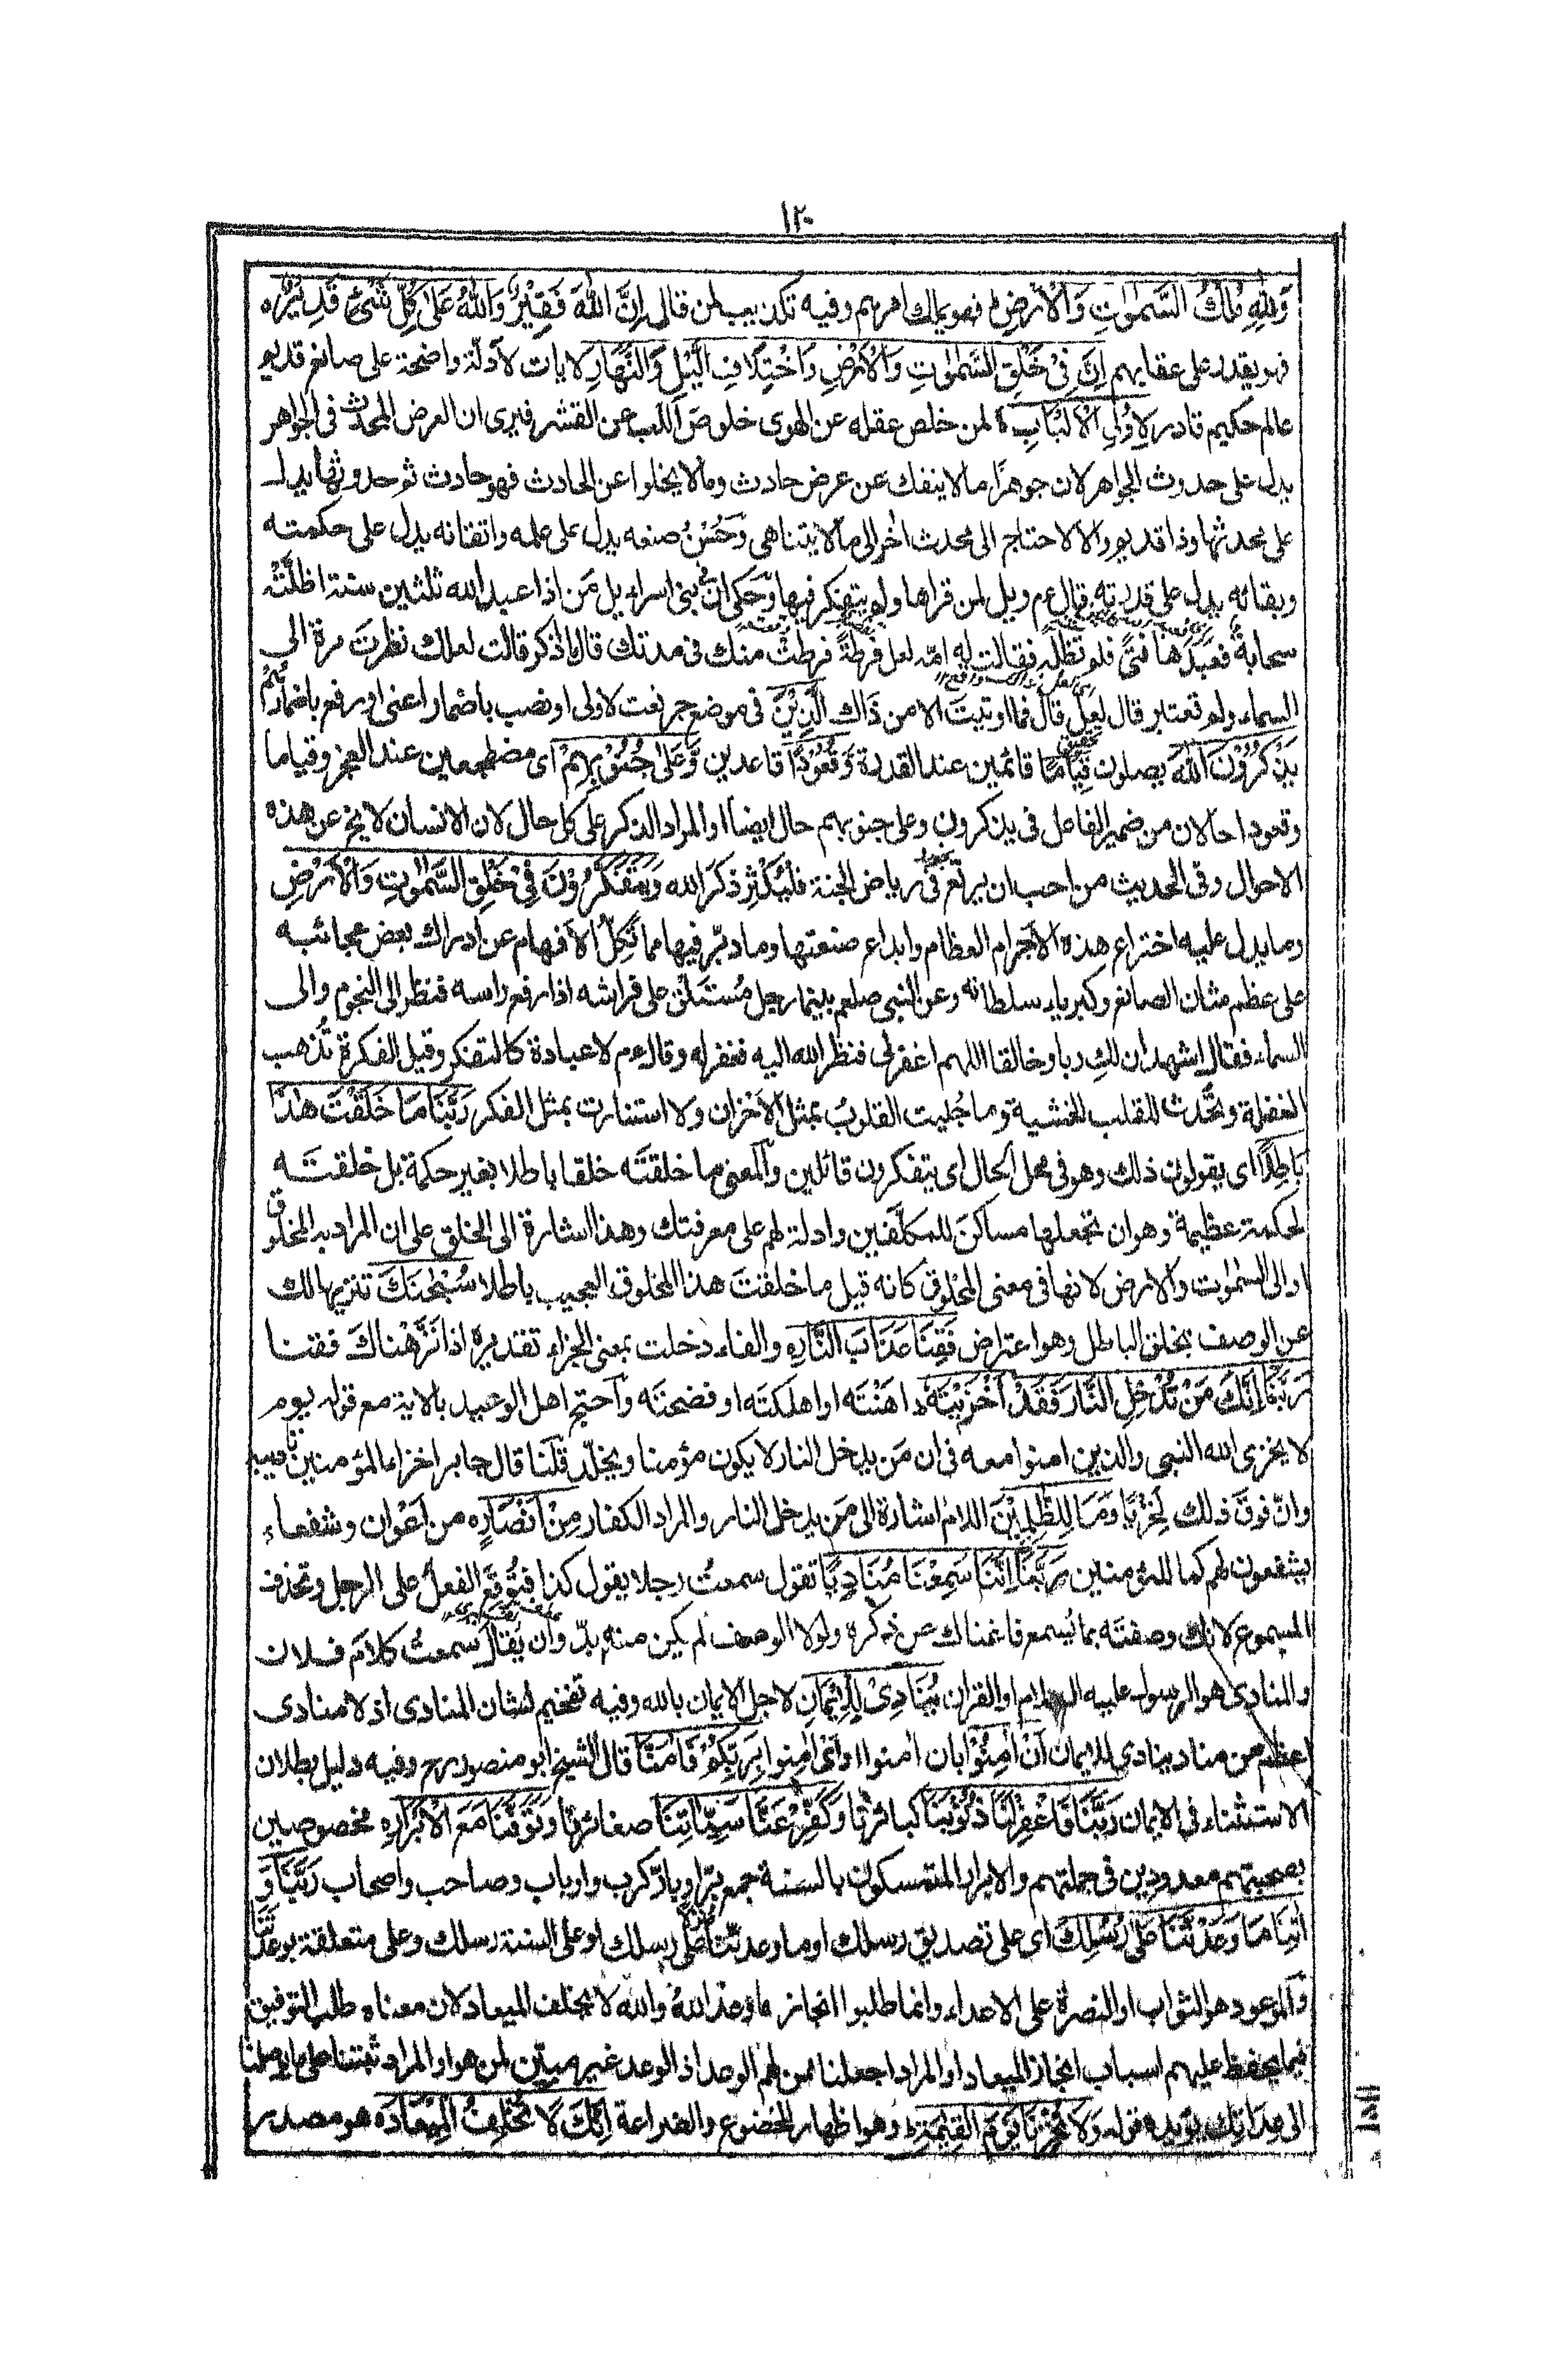 ١٢٠
وَلِلّٰهِ مُلْكُ السَّمٰوٰتِ وَالْاَرْضِ ط فهو يملك امرهم وفيه تكذيب لمن قال اِنَّ اللّٰهَ فَقِيْرٌ وَاللّٰهُ عَلٰى كُلِّ شَىْءٍ قَدِيْرٌ ه
فهو يقدر على عقابهم اِنَّ فِىْ خَلْقِ السَّمٰوٰتِ وَالْاَرْضِ وَاخْتِلَافِ الَّيْلِ وَالنَّهَارِ لايات لادلّة واضحة على صانع قديم
عالم حكيم قادر لِاُولِى الْاَلْبَابِ ه لمن خلص عقله عن الهوى خلوصَ اللب عن القشر فيرى ان العرض المحدث فى الجواهر
يدل على حدوث الجواهر لان جوهرًا ما لا ينفك عن عرض حادث وما لا يخلوا عن الحادث فهو حادث ثم حدوثها يدل
على محدثها وذا قديم والا لاحتاج الى محدث اخر الى ما لا يتناهى وَحُسْنُ صنعه يدل على علمه واتقانه يدل على حكمته
وبقائه يدل على قدرته قال عم ويل لمن قراها ولم يتفكر فيها وحكى انّ فى بنى اسراءيل مَن اذا عبد الله ثلثين سنة اظلَّتْه
سحابةٌ فعَبَدَها فتىً فلم تظلّه فقالت له امّه لعل فرطةً فرطَتْ منك فى مدتك قال ما اذكر قالت لعلك نظرتَ مرة الى
السماء ولم تعتبر قال لعل قالت فما اوتيتَ الا من ذاك الَّذِيْنَ فى موضع جر نعت لاولى او نصب باضمار اعنى او رفع باضمارهُم
يَذْكُرُوْنَ اللّٰهَ يصلون قِيَامًا قائمين عند القدرة وَّقُعُوْدًا قاعدين وَّعَلٰى جُنُوْبِهِمْ اى مضطجعين عند العجز وقياما
وقعودا حالان من ضمير الفاعل فى يذكرون وعلى جنوبهم حال ايضا او المراد الذكر على كل حال لان الانسان لا يخ عن هذه
الاحوال وفى الحديث من احب ان يرتع فى رياض الجنة فليُكْثِر ذكرَ الله وَيَتَفَكَّرُوْنَ فِىْ خَلْقِ السَّمٰوٰتِ وَالْاَرْضِ
وما يدل عليه اختراع هذه الاجرام العظام وابداع صنعتها وما دبّر فيها مما تَكِلُّ الافهام عن ادراك بعض عجائبه
على عظم شان الصانع وكبرياء سلطانه وعن النبى صلعم بينما رجل مُستَلْقٍ على فراشه اذا رفع راسه فنظر الى النجوم والى
السماء فقال اشهد ان لكِ ربا وخالقا اللهم اغفر لى فنظر الله اليه فغفر له وقال عم لا عبادة كالتفكر وقيل الفكرة تُذهب
الغفلة وتحدث للقلب الخشية وما جُليت القلوبُ بمثل الاحزان ولا استنارت بمثل الفكر رَبَّنَا مَا خَلَقْتَ هٰذَا
بَاطِلًا اى يقولون ذلك وهو فى محل الحال اى يتفكرون قائلين والمعنى ما خلقتَه خلقا باطلا بغير حكمة بل خلقتَه
لحكمة عظيمة وهو ان تجعلها مساكنَ للمكلّفين وادلة لهم على معرفتك وهذا اشارة الى الخلق على ان المراد به المخلوق
او الى السمٰوٰت والارض لانها فى معنى المخلوق كانه قيل ما خلقتَ هذا المخلوق العجيب باطلا سُبْحٰنَكَ تنزيها لك
عن الوصف بخلق الباطل وهو اعتراض فَقِنَا عَذَابَ النَّارِ ه والفاء دخلت بمعنى الجزاء تقديره اذا نزّهناك فقنا
رَبَّنَا اِنَّكَ مَنْ تُدْخِلِ النَّارَ فَقَدْ اَخْزَيْتَهٗ ط اهَنْتَه او اهلكتَه او فضحتَه واحتج اهل الوعيد بالاية مع قوله يوم
لا يخزى الله النبى والذين امنوا معه فى ان مَن يدخل النار لا يكون مؤمنا ويخلّد قلنا قال جابر اخزاء المؤمنين تاديبه
وانّ فوقَ ذلك لَخِزْيًا وَمَا لِلظّٰلِمِيْنَ اللام اشارة الى من يدخل النار والمراد الكفار مِنْ اَنْصَارٍ ه من اَعْوان وشفعاء
يشفعون لهم كما للمؤمنين رَبَّنَا اِنَّنَا سَمِعْنَا مُنَادِيًا تقول سمعتُ رجلا يقول كذا فتُوقِع الفعلَ على الرجل وتحذف
المسموع لانك وصفتَه بما يُسمع فاغناك عن ذكره ولولا الوصف لم يكن منه بدّ وان يقال سمعتُ كلامَ فلان
والمنادى هو الرسول عليه السلام او القران يُنَادِىْ لِلْاِيْمَانِ لاجل الايمان بالله وفيه تفخيم لشان المنادى اذ لا منادى
اعظم من مناد ينادى للايمان اَنْ اٰمِنُوْا بان امنوا او اَىْ اٰمنوا بِرَبِّكُمْ فَاٰمَنَّا قال الشيخ ابو منصور رح وفيه دليل بطلان
الاستثناء فى الايمان رَبَّنَا فَاغْفِرْلَنَا ذُنُوْبَنَا كبائرَنا وَكَفِّرْ عَنَّا سَيِّاٰتِنَا صغائرَنا وَتَوَفَّنَا مَعَ الْاَبْرَارِ ه مخصوصين
بصحبتهم معدودين فى جملتهم والابرار المتمسكون بالسنة جمع برّ او بارّ كرب وارباب وصاحب واصحاب رَبَّنَا وَ
اٰتِنَا مَا وَعَدْتَّنَا عَلٰى رُسُلِكَ اى على تصديق رسلك او ما وعدتنا على رسلك او على السنة رسلك وعلى متعلقة بوعَدْتَّنَا
والموعود هو الثواب او النصرة على الاعداء وانما طلبوا انجاز ما وعد اللهُ والله لا يخلف الميعاد لان معناه طلب التوفيق
فيما يحفظ عليهم اسباب انجاز الميعاد او المراد اجعلنا ممن لهم الوعد اذ الوعد غير مبيّن لمن هو او المراد ثبتنا على ما يوصلنا
الى عِدَاتِك يؤيده قوله وَلَا تُخْزِنَا يَوْمَ الْقِيٰمَةِ ط وهو اظهار للخضوع والضراعة اِنَّكَ لَا تُخْلِفُ الْمِيْعَادَ ه هو مصدر